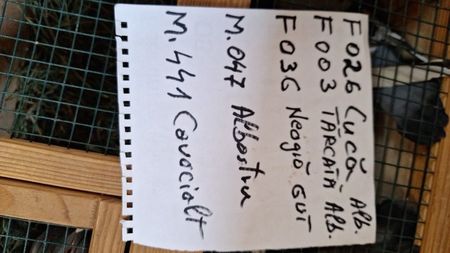 F 026 Cucă Alb.
F 003 TĂRCATĂ Alb.
F 036 Neagră GUT
M. 047 Albastru
M. 441